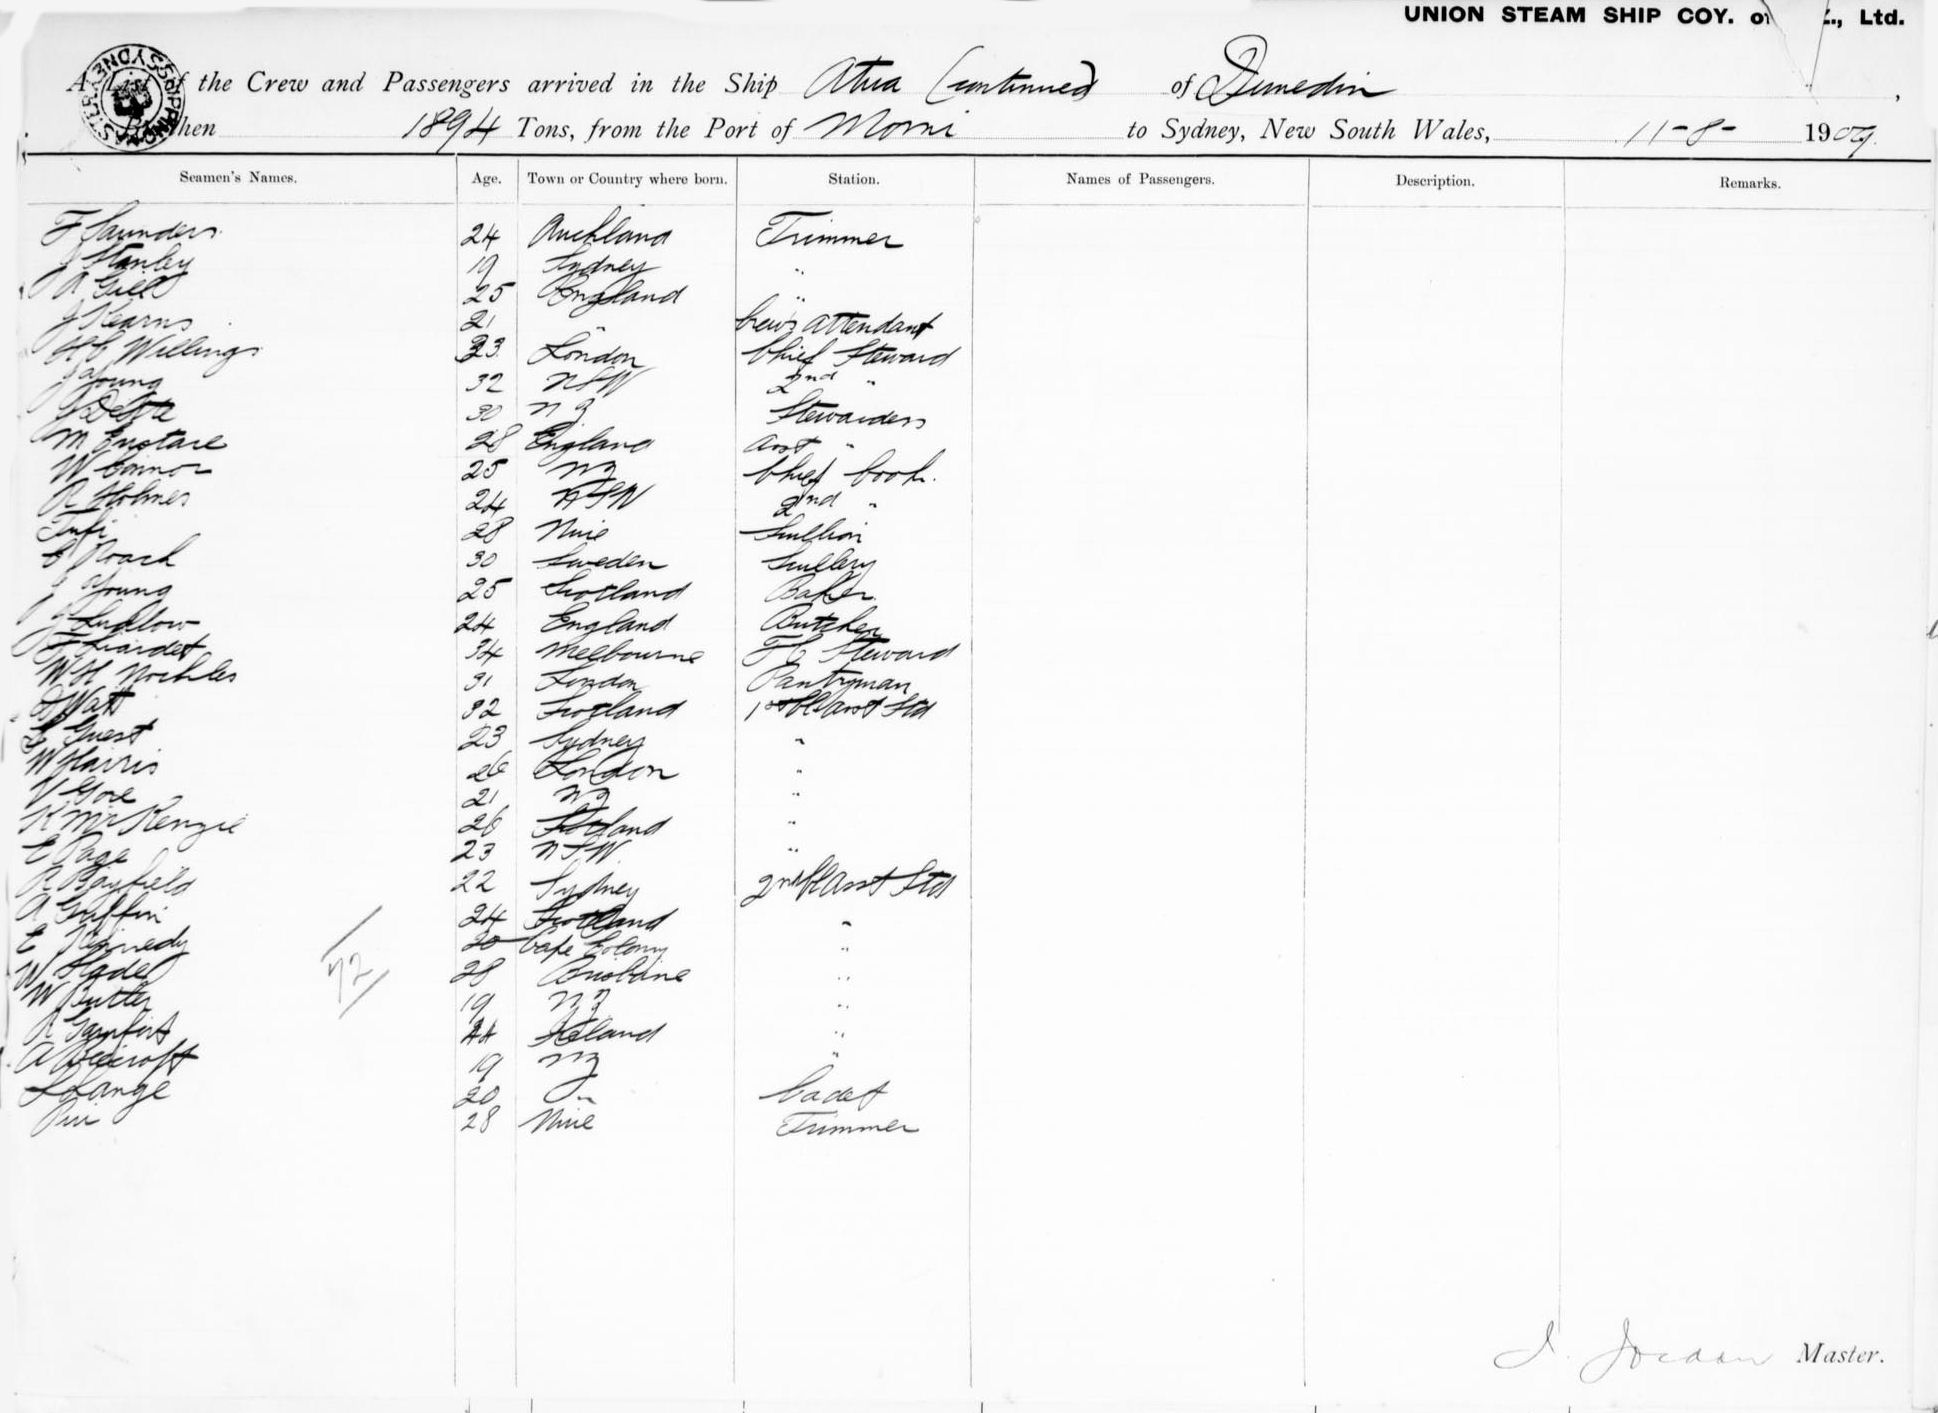 UNION STEAM SHIP COY. of Z., Ltd.
A List of the Crew and Passengers arrived in the Ship Atua (continued) of Dunedin,
Burthen 1894 Tons, from the Port of to Sydney, New South Wales, 11-8- 1909
Seamen's Names. Age. Town or Country where born. Station. Names of Passengers. Description. Remarks.
F Saunders 24 Auckland Trimmer
J Stanley 19 Sydney "
A Gill 25 England "
J Kearns 21 " Crew's Attendant
H C Willings 33 London Chief Steward
J Young 32 NSW 2nd "
30 NZ Stewardess
M Eustace 28 England Asst "
W Connor 25 NZ Chief Cook.
R Holmes 24 NSW 2nd "
28 Niue Scullion
C Roach 30 Sweden Scullery
J Young 25 Scotland Baker
J Ludlow 24 England Butcher
F Liardet 34 Melbourne F C Steward
W H Nochles 31 London Pantryman
D Watt 32 Scotland 1st Cl Asst Std
C Guest 23 Sydney "
W Harris 26 London "
V Gore 21 NZ "
K McKenzie 26 Scotland "
E Page 23 NSW "
R Bayfield 22 Sydney 2nd Cl Asst Std
A Griffin 24 Scotland "
E Kennedy 20 Cape Colony "
W Slade 28 Brisbane "
W Butler 19 NZ "
R 44 Ireland "
A Beecroft 19 NZ "
L Lange 20 " Cadet
28 Niue Trimmer
72
J. Jordan Master.